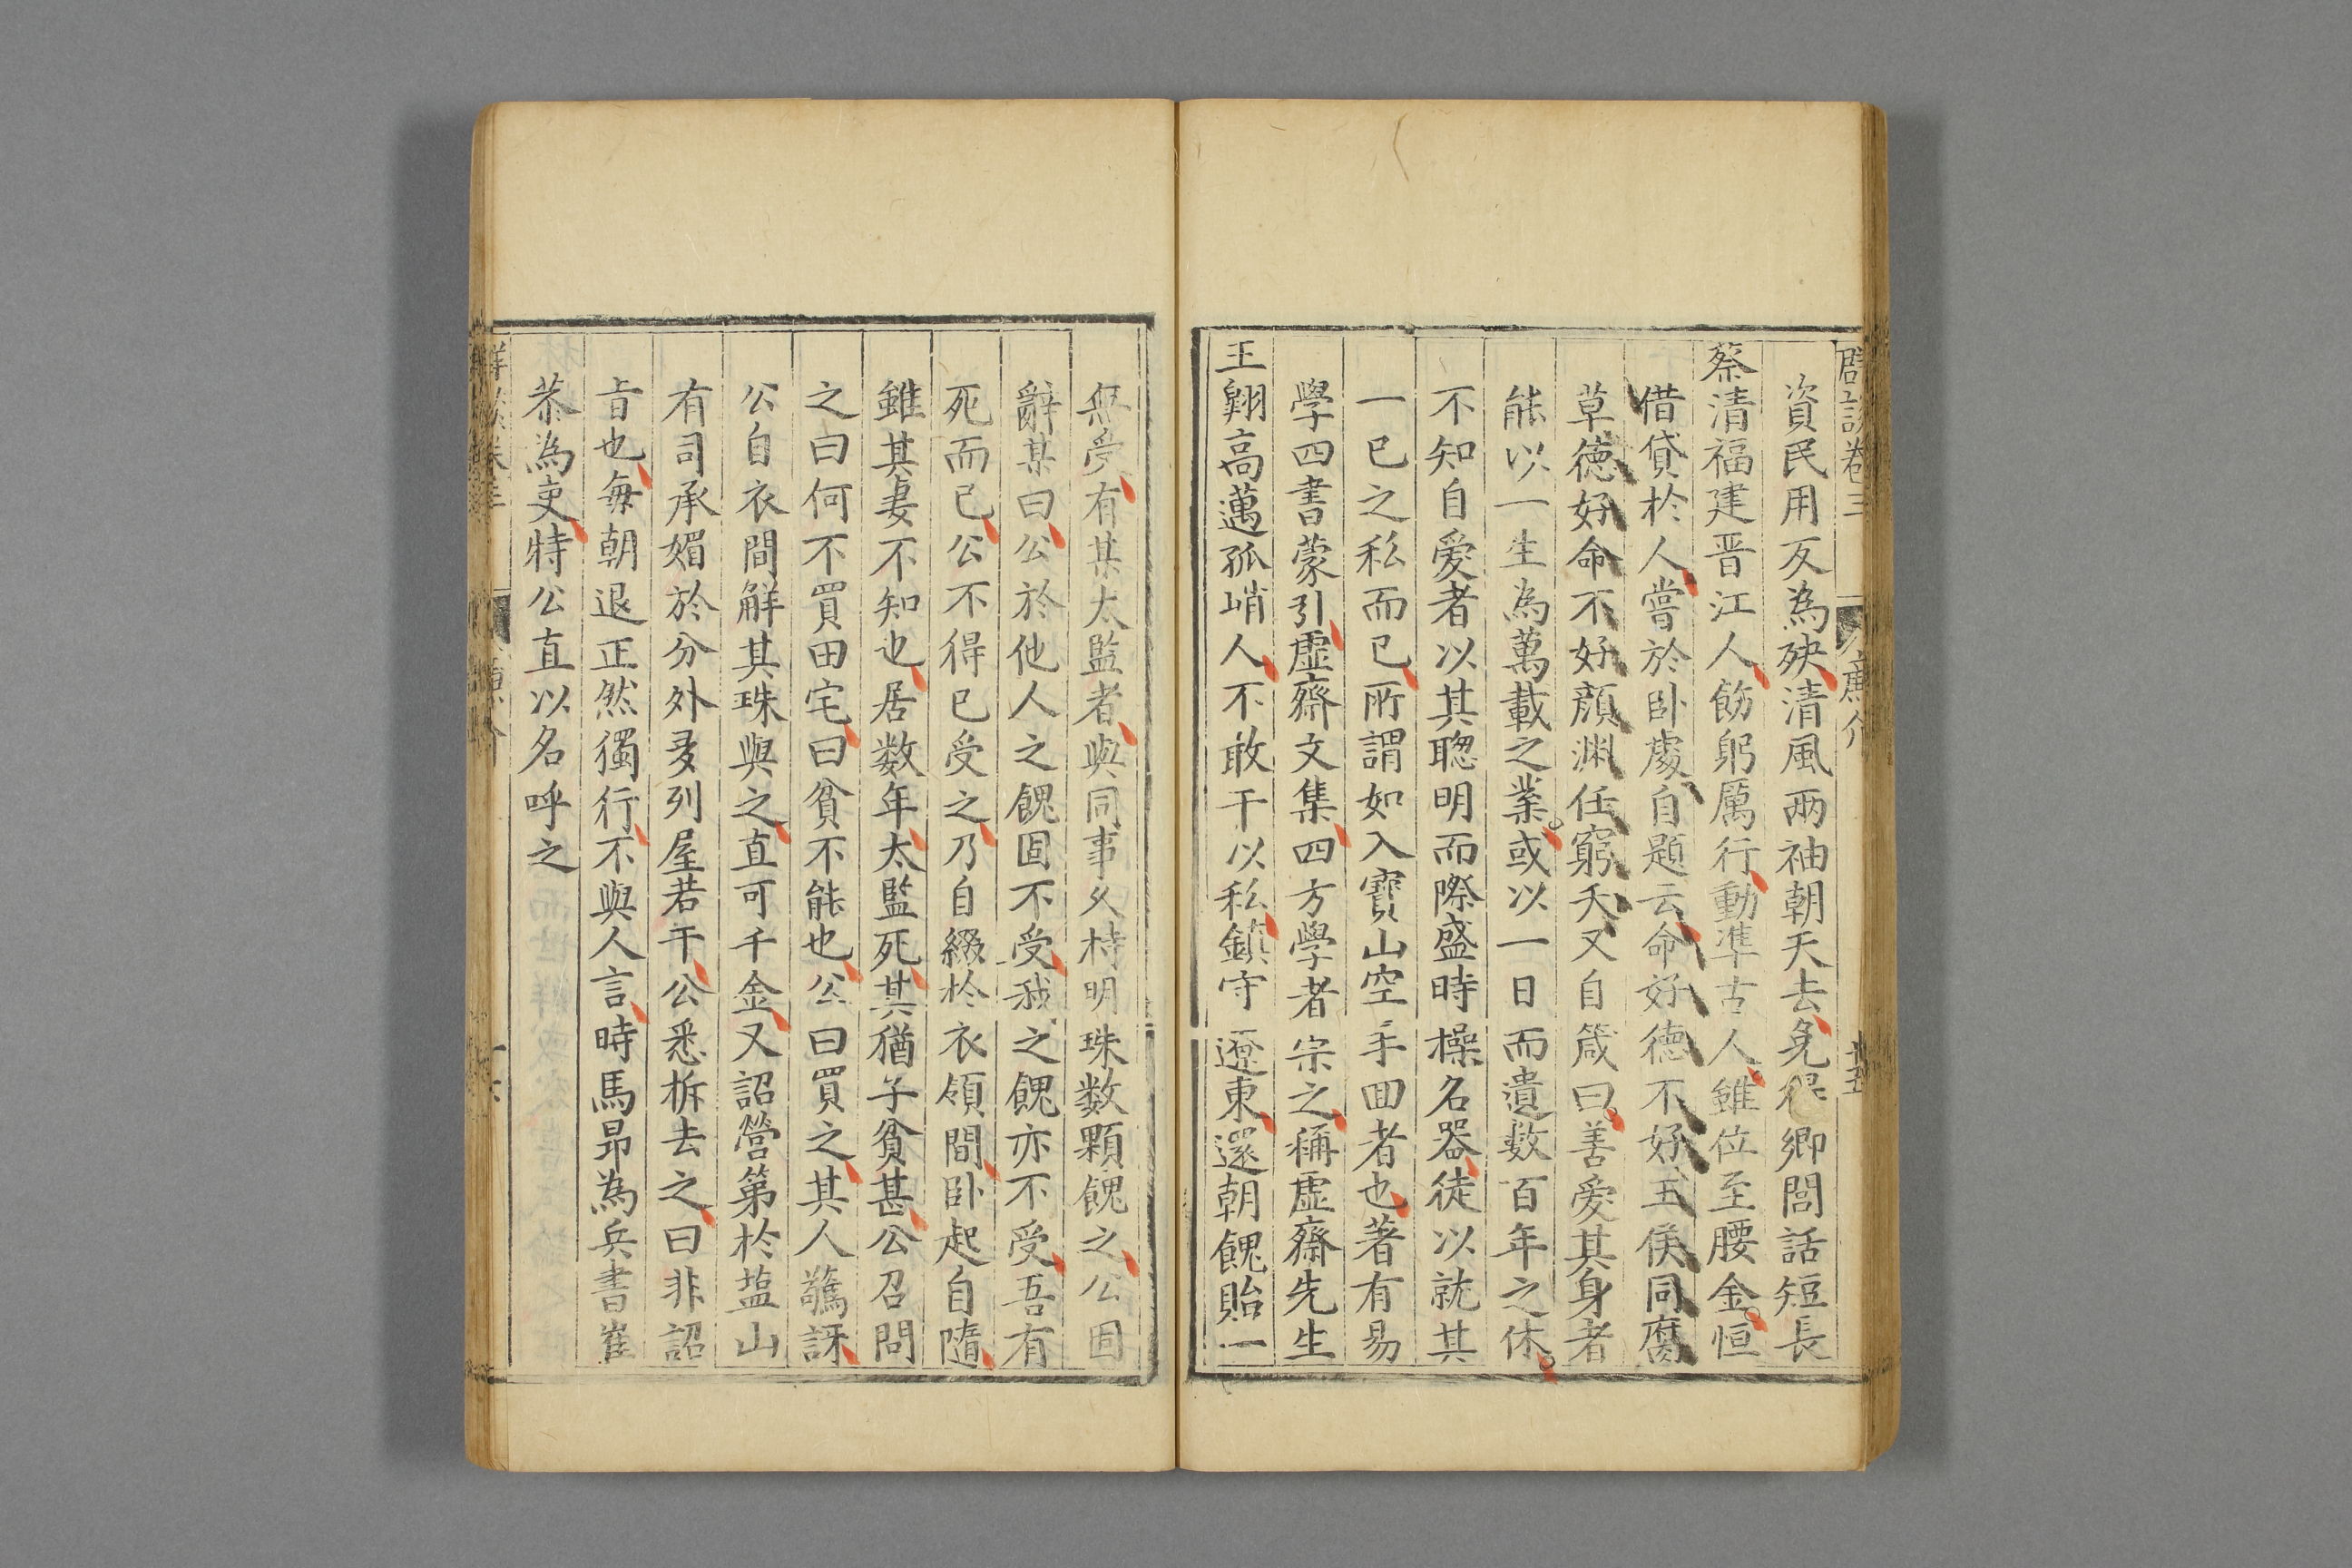 資民用反為殃清風兩袖朝天去免得鄉閭話短長
蔡清福建晋江人飭躬厲行動準古人雖位至腰金恒
借貸於人嘗於卧處自題云命好德不好王侯同腐
草德好命不好顔渊任窮夭又自箴曰善愛其身者
能以一生為萬載之業或以一日而遺数百年之休
不知自愛者以其聦明而際盛時操名器徒以就其
一已之私而已所謂如入寶山空手囬者也著有易
學四書蒙引虛齋文集四方學者宗之稱虛齋先生
王翱高邁孤峭人不敢干以私鎮守遼東還朝餽貽一
無受有某太監者與同事久持明珠数顆餽之公固
辭某曰公於他人之餽固不受我之餽亦不受吾有
死而已公不得已受之乃自綴於衣領間卧起自隨
雖其妻不知也居数年太監死其猶子貧甚公召問
之曰何不買田宅曰貧不能也公曰買之其人驚訝
公自衣間觧其珠與之直可千金又詔營第於塩山
有司承媚於分外多列屋若干公悉柝去之曰非詔
旨也每朝退正然獨行不與人言時馬昻為兵書崔
恭為吏特公直以名呼之